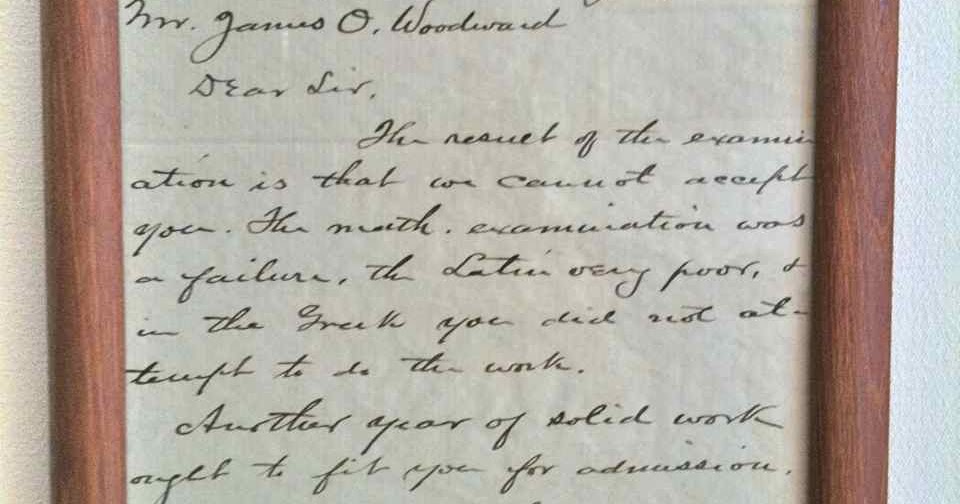 Mr. James O. Woodward
Dear Sir,
The result of the examin
ation is that we cannot accept
you. The math. examination was
a failure, the Latin very poor, &
in the Greek you did not at-
tempt to do the work.
Another year of solid work
ought to fit you for admission.